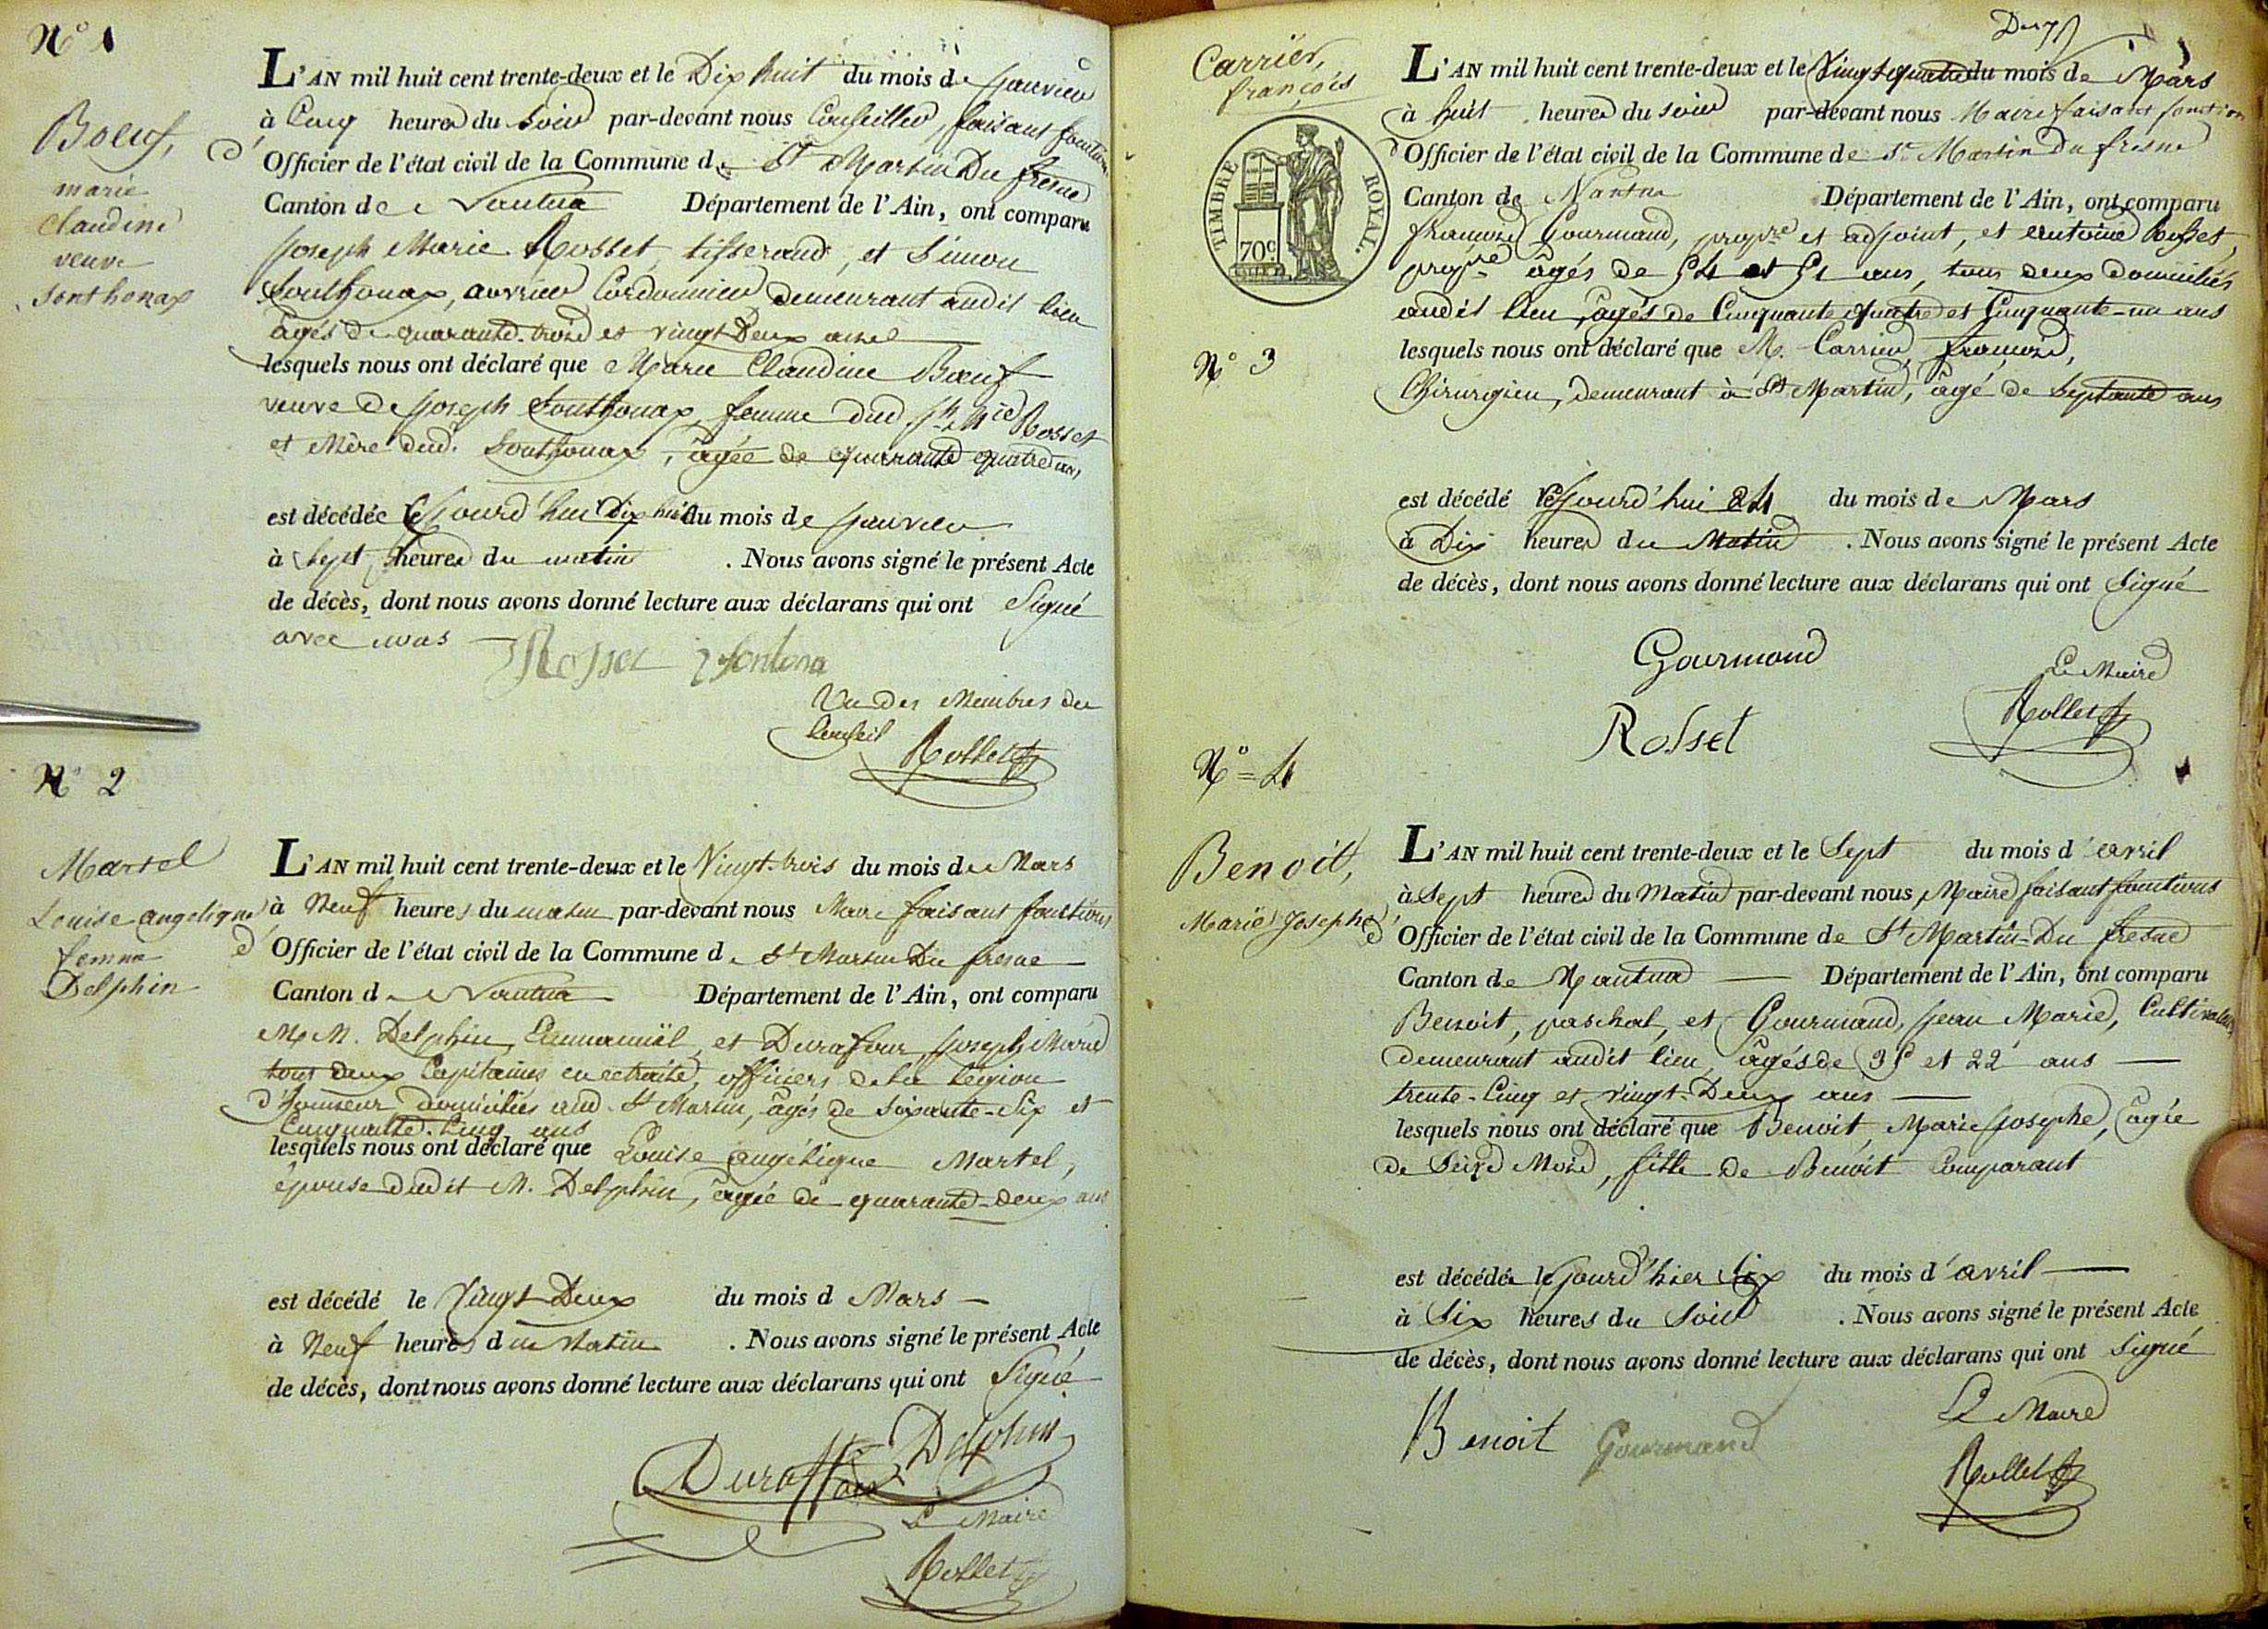 N° 1
Boeuf,
marie
claudine
veuve
Sonthonax
L'AN mil huit cent trente-deux et le Dix huit du mois de janvier
à Cinq heures du soir par-devant nous Conseiller, faisant fonction
d'Officier de l'état civil de la Commune de St Martin Du fresne
Canton de Nantua Département de l'Ain, ont comparu
Joseph Marie Rosset, tisserand, et Simon
Sonthonax, ouvrier Cordonnier demeurant audit lieu
âgés de quarante-trois et vingt Deux ans
lesquels nous ont déclaré que Marie Claudine Boeuf
veuve de Joseph Sonthonax, femme dud. jh Mie Rosset
et Mère dud. Sonthonax, âgée de quarante quatre ans,
est décédée le jourd'hui Dix huit du mois de janvier
à Sept heures du matin . Nous avons signé le présent Acte
de décès, dont nous avons donné lecture aux déclarans qui ont Signé
avec nous
Rosset Sontona
Un des Membres du
Conseil
Rollet
N° 2
Martel
Louise angelique
femme
Delphin
L'AN mil huit cent trente-deux et le Vingt-trois du mois de Mars
à Neuf heures du matin par-devant nous Maire faisant fonctions
d'Officier de l'état civil de la Commune de St Martin Du fresne
Canton de Nantua Département de l'Ain, ont comparu
M.M. Delphin, Emmanuël, et Durafour, Joseph Marie
tous deux Capitaines en retraite, officiers de la Légion
d'honneur domiciliés aud. St Martin, âgés de soixante-Six et
Cinquante-Cinq ans
lesquels nous ont déclaré que Louise angélique Martel,
épouse dudit M. Delphin, âgée de quarante-deux ans
est décédé le Vingt Deux du mois d Mars
à Neuf heures du Matin . Nous avons signé le présent Acte
de décès, dont nous avons donné lecture aux déclarans qui ont Signé
Delphin
Duraffour
Le Maire
Rollet
Carrier,
françois
TIMBRE ROYAL.
70c
N° 3
L'AN mil huit cent trente-deux et le Vingt quatre du mois de Mars
à huit heures du soir par-devant nous Maire faisant fonction
d'Officier de l'état civil de la Commune de St Martin Du fresne
Canton de Nantua Département de l'Ain, ont comparu
françois Gourmand, propre et adjoint, et antoine Rosset,
propre âgés de 54 et 51 ans, tous deux domiciliés
audit lieu, âgés de Cinquante quatre et Cinquante-un ans
lesquels nous ont déclaré que M. Carrier, françois,
Chirurgien, demeurant à St Martin, âgé de Septante ans
est décédé le jourd'hui 24 du mois de Mars
à Dix heures du Matin . Nous avons signé le présent Acte
de décès, dont nous avons donné lecture aux déclarans qui ont Signé
Gourmand
Le Maire
Rosset
Rollet
N° = 4
Benoit,
Marie Josephe
L'AN mil huit cent trente-deux et le Sept du mois d'avril
à Sept heures du Matin par-devant nous Maire faisant fonctions
d'Officier de l'état civil de la Commune de St Martin-Du fresne
Canton de Nantua Département de l'Ain, ont comparu
Benoit, paschal, et Gourmand, jean Marie, Cultivateurs
demeurant audit lieu, âgés de 35 et 22 ans
trente-Cinq et vingt-Deux ans
lesquels nous ont déclaré que Benoit, Marie Josephe, âgée
de Seize Mois, fille de Benoit Comparant
est décédée le jourd'hier Six du mois d'avril
à Six heures du Soir . Nous avons signé le présent Acte
de décès, dont nous avons donné lecture aux déclarans qui ont Signé
Benoit Gourmand
Le Maire
Rollet